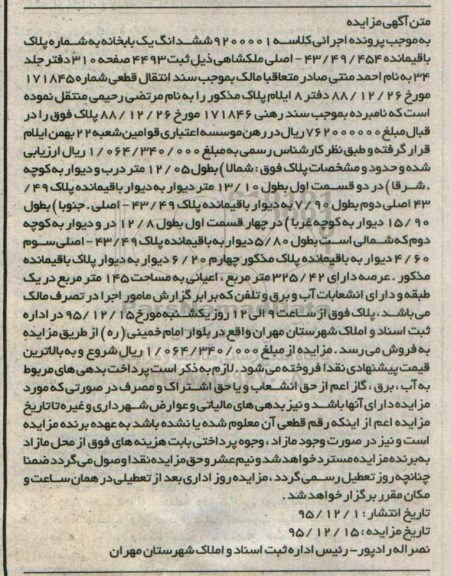 متن آگهی مزایده
به موجب پرونده اجرائی کلاسه ۹۲۰۰۰۰۱ ششدانگ یک بابخانه به شماره پلاک
باقیمانده ۴۳/۴۹/۴۵۴ - اصلی ملکشاهی ذیل ثبت ۴۴۹۳ صفحه ۳۱۰ دفتر جلد
۳۴ به نام احمد منتی صادر متعاقبا مالک بموجب سند انتقال قطعی شماره ۱۷۱۸۴۵
مورخ ۸۸/۱۲/۲۶ دفتر ۸ ایلام پلاک مذکور را به نام مرتضی رحیمی منتقل نموده
است که نامبرده بموجب سند رهنی ۱۷۱۸۴۶ مورخ ۸۸/۱۲/۲۶ پلاک فوق را در
قبال مبلغ ۷۶۲۰۰۰۰۰۰ ریال در رهن موسسه اعتباری قوامین شعبه ۲۲ بهمن ایلام
قرار گرفته و طبق نظر کارشناس رسمی به مبلغ ۱/۰۶۴/۳۴۰/۰۰۰ ریال ارزیابی
شده و حدود و مشخصات پلاک فوق: شمالا) بطول ۱۲/۰۵ متر درب و دیوار به کوچه
. شرقا) در دو قسمت اول بطول ۱۳/۱۰ متر دیوار به دیوار باقیمانده پلاک ۴۹/
۴۳ اصلی دوم بطول ۷/۹۰ به دیوار باقیمانده پلاک ۴۳/۴۹ - اصلی . جنوبا) بطول
۱۵/۹۰ دیوار به کوچه غربا) در چهار قسمت اول بطول ۱۲/۸ در و دیوار به کوچه
دوم که شمالی است بطول ۵/۸۰ دیوار به باقیمانده پلاک ۴۳/۴۹ - اصلی سوم
۴/۶۰ دیوار به باقیمانده پلاک مذکور چهارم ۶/۲۰ دیوار به دیوار پلاک باقیمانده
مذکور . عرصه دارای ۳۲۵/۴۲ متر مربع ، اعیانی به مساحت ۱۴۵ متر مربع در یک
طبقه و دارای انشعابات آب و برق و تلفن که برابر گزارش مامور اجرا در تصرف مالک
می باشد ، پلاک فوق از ساعت ۹ الی ۱۲ روز یکشنبه مورخ ۹۵/۱۲/۱۵ در اداره
ثبت اسناد و املاک شهرستان مهران واقع در بلوار امام خمینی (ره) از طریق مزایده
به فروش می رسد . مزایده از مبلغ ۱/۰۶۴/۳۴۰/۰۰۰ ریال شروع و به بالاترین
قیمت پیشنهادی نقدا فروخته می شود . لازم به ذکر است پرداخت بدهی های مربوط
به آب ، برق ، گاز اعم از حق انشعاب و یا حق اشتراک و مصرف در صورتی که مورد
مزایده دارای آنها باشد و نیز بدهی های مالیاتی و عوارض شهرداری و غیره تا تاریخ
مزایده اعم از اینکه رقم قطعی آن معلوم شده یا نشده باشد به عهده برنده مزایده
است و نیز در صورت وجود مازاد ، وجوه پرداختی بابت هزینه های فوق از محل مازاد
به برنده مزایده مسترد خواهد شد و نیم عشر و حق مزایده نقدا وصول می گردد ضمنا
چنانچه روز تعطیل رسمی گردد ، مزایده روز اداری بعد از تعطیلی در همان ساعت و
مکان مقرر برگزار خواهد شد .
تاریخ انتشار : ۹۵/۱۲/۱
تاریخ مزایده : ۹۵/۱۲/۱۵
نصراله رادپور - رئیس اداره ثبت اسناد و املاک شهرستان مهران